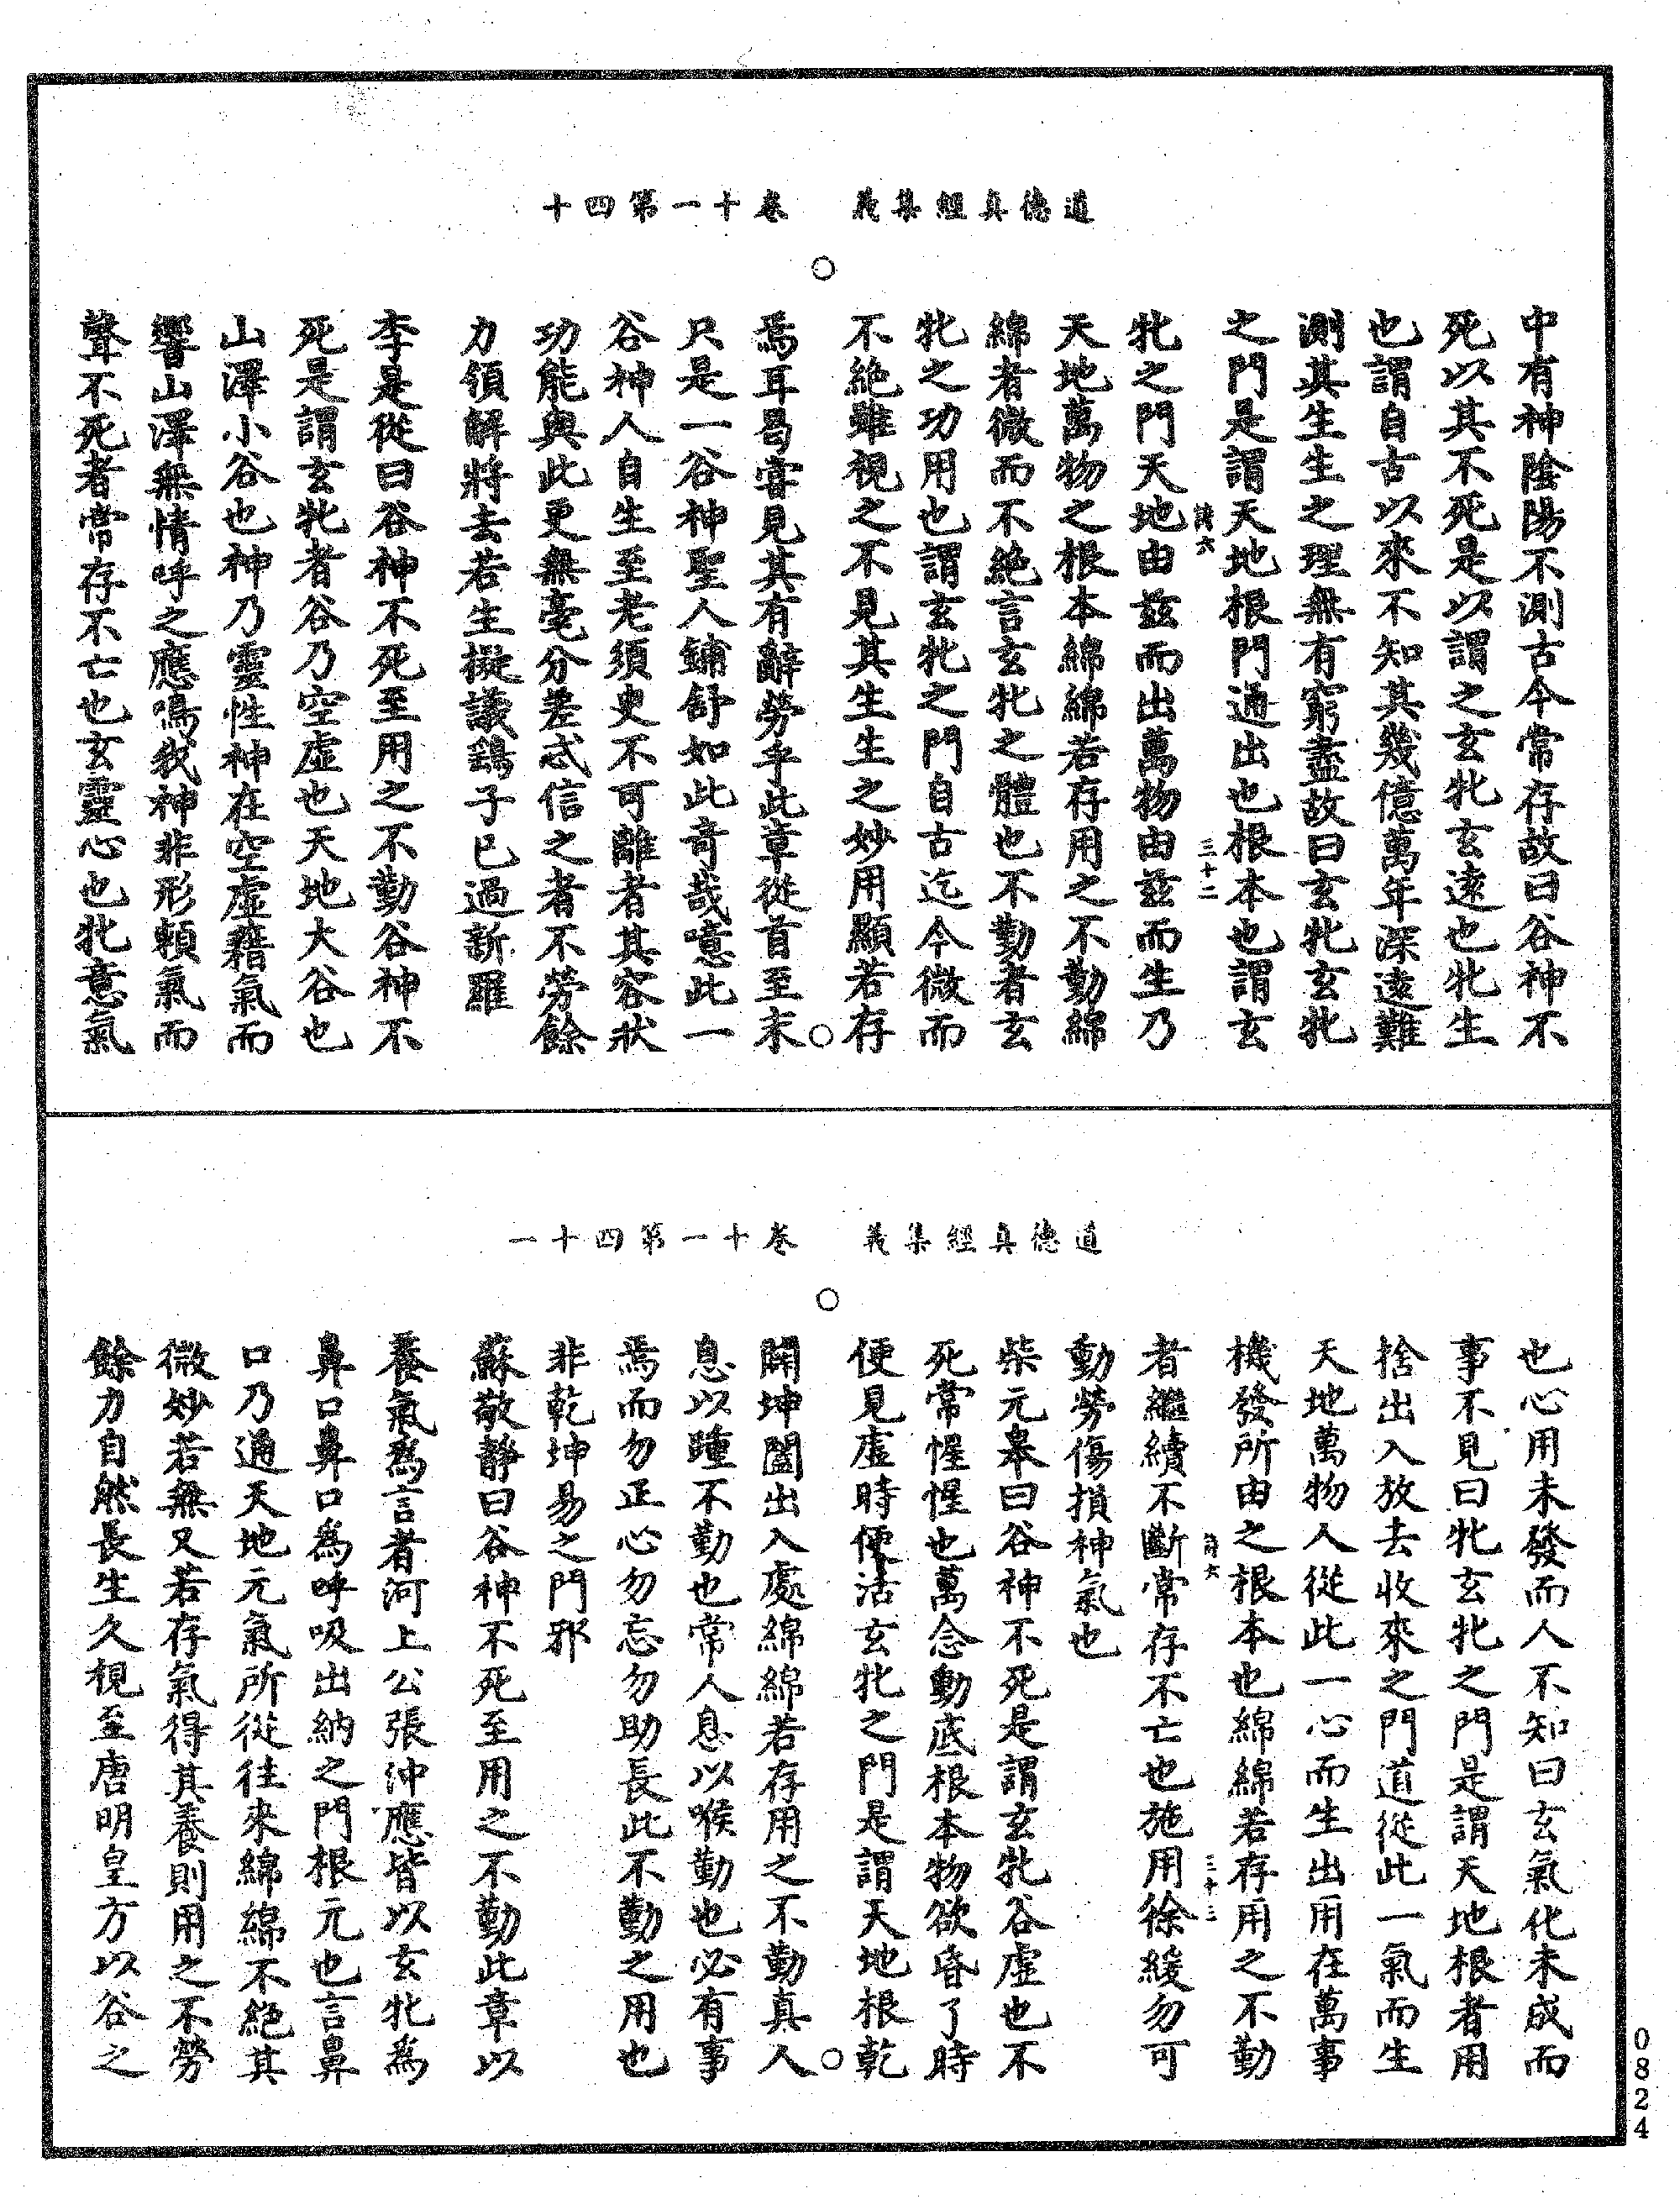 道德真經集義　卷十一第四十
中有神陰陽不測古今常存故曰谷神不
死以其不死是以謂之玄牝玄遠也牝生
也謂自古以來不知其幾億萬年深遠難
測其生生之理無有窮盡故曰玄牝玄牝
之門是謂天地根門通出也根本也謂玄
三十二
牝之門天地由茲而出萬物由茲而生乃
天地萬物之根本綿綿若存用之不勤綿
綿者微而不絶言玄牝之體也不勤者玄
牝之功用也謂玄牝之門自古迄今微而
不絶雖視之不見其生生之妙用顯若存
焉耳曷嘗見其有辭勞乎此章從首至末
只是一谷神聖人鋪舒如此奇哉噫此一
谷神人自生至老須臾不可離者其容狀
功能與此更無毫分差忒信之者不勞餘
力領解將去若生擬議鷂子已過新羅
李是從曰谷神不死至用之不勤谷神不
死是謂玄牝者谷乃空虛也天地大谷也
山澤小谷也神乃靈性神在空虛藉氣而
響山澤無情呼之應鳴我神非形賴氣而
聲不死者常存不亡也玄靈心也牝意氣
道德真經集義　卷十一第四十一
也心用未發而人不知曰玄氣化未成而
事不見曰牝玄牝之門是謂天地根者用
捨出入放去收來之門道從此一氣而生
天地萬物人從此一心而生出用在萬事
機發所由之根本也綿綿若存用之不勤
三十三
者繼續不斷常存不亡也施用徐緩勿可
動勞傷損神氣也
柴元皋曰谷神不死是謂玄牝谷虛也不
死常惺惺也萬念動底根本物欲昏了時
便見虛時便活玄牝之門是謂天地根乾
開坤闔出入處綿綿若存用之不勤真人
息以踵不勤也常人息以喉勤也必有事
焉而勿正心勿忘勿助長此不勤之用也
非乾坤易之門邪
蘇敬靜曰谷神不死至用之不勤此章以
養氣為言者河上公張沖應皆以玄牝為
鼻口鼻口為呼吸出納之門根元也言鼻
口乃通天地元氣所從往來綿綿不絶其
微妙若無又若存氣得其養則用之不勞
餘力自然長生久視至唐明皇方以谷之
0824